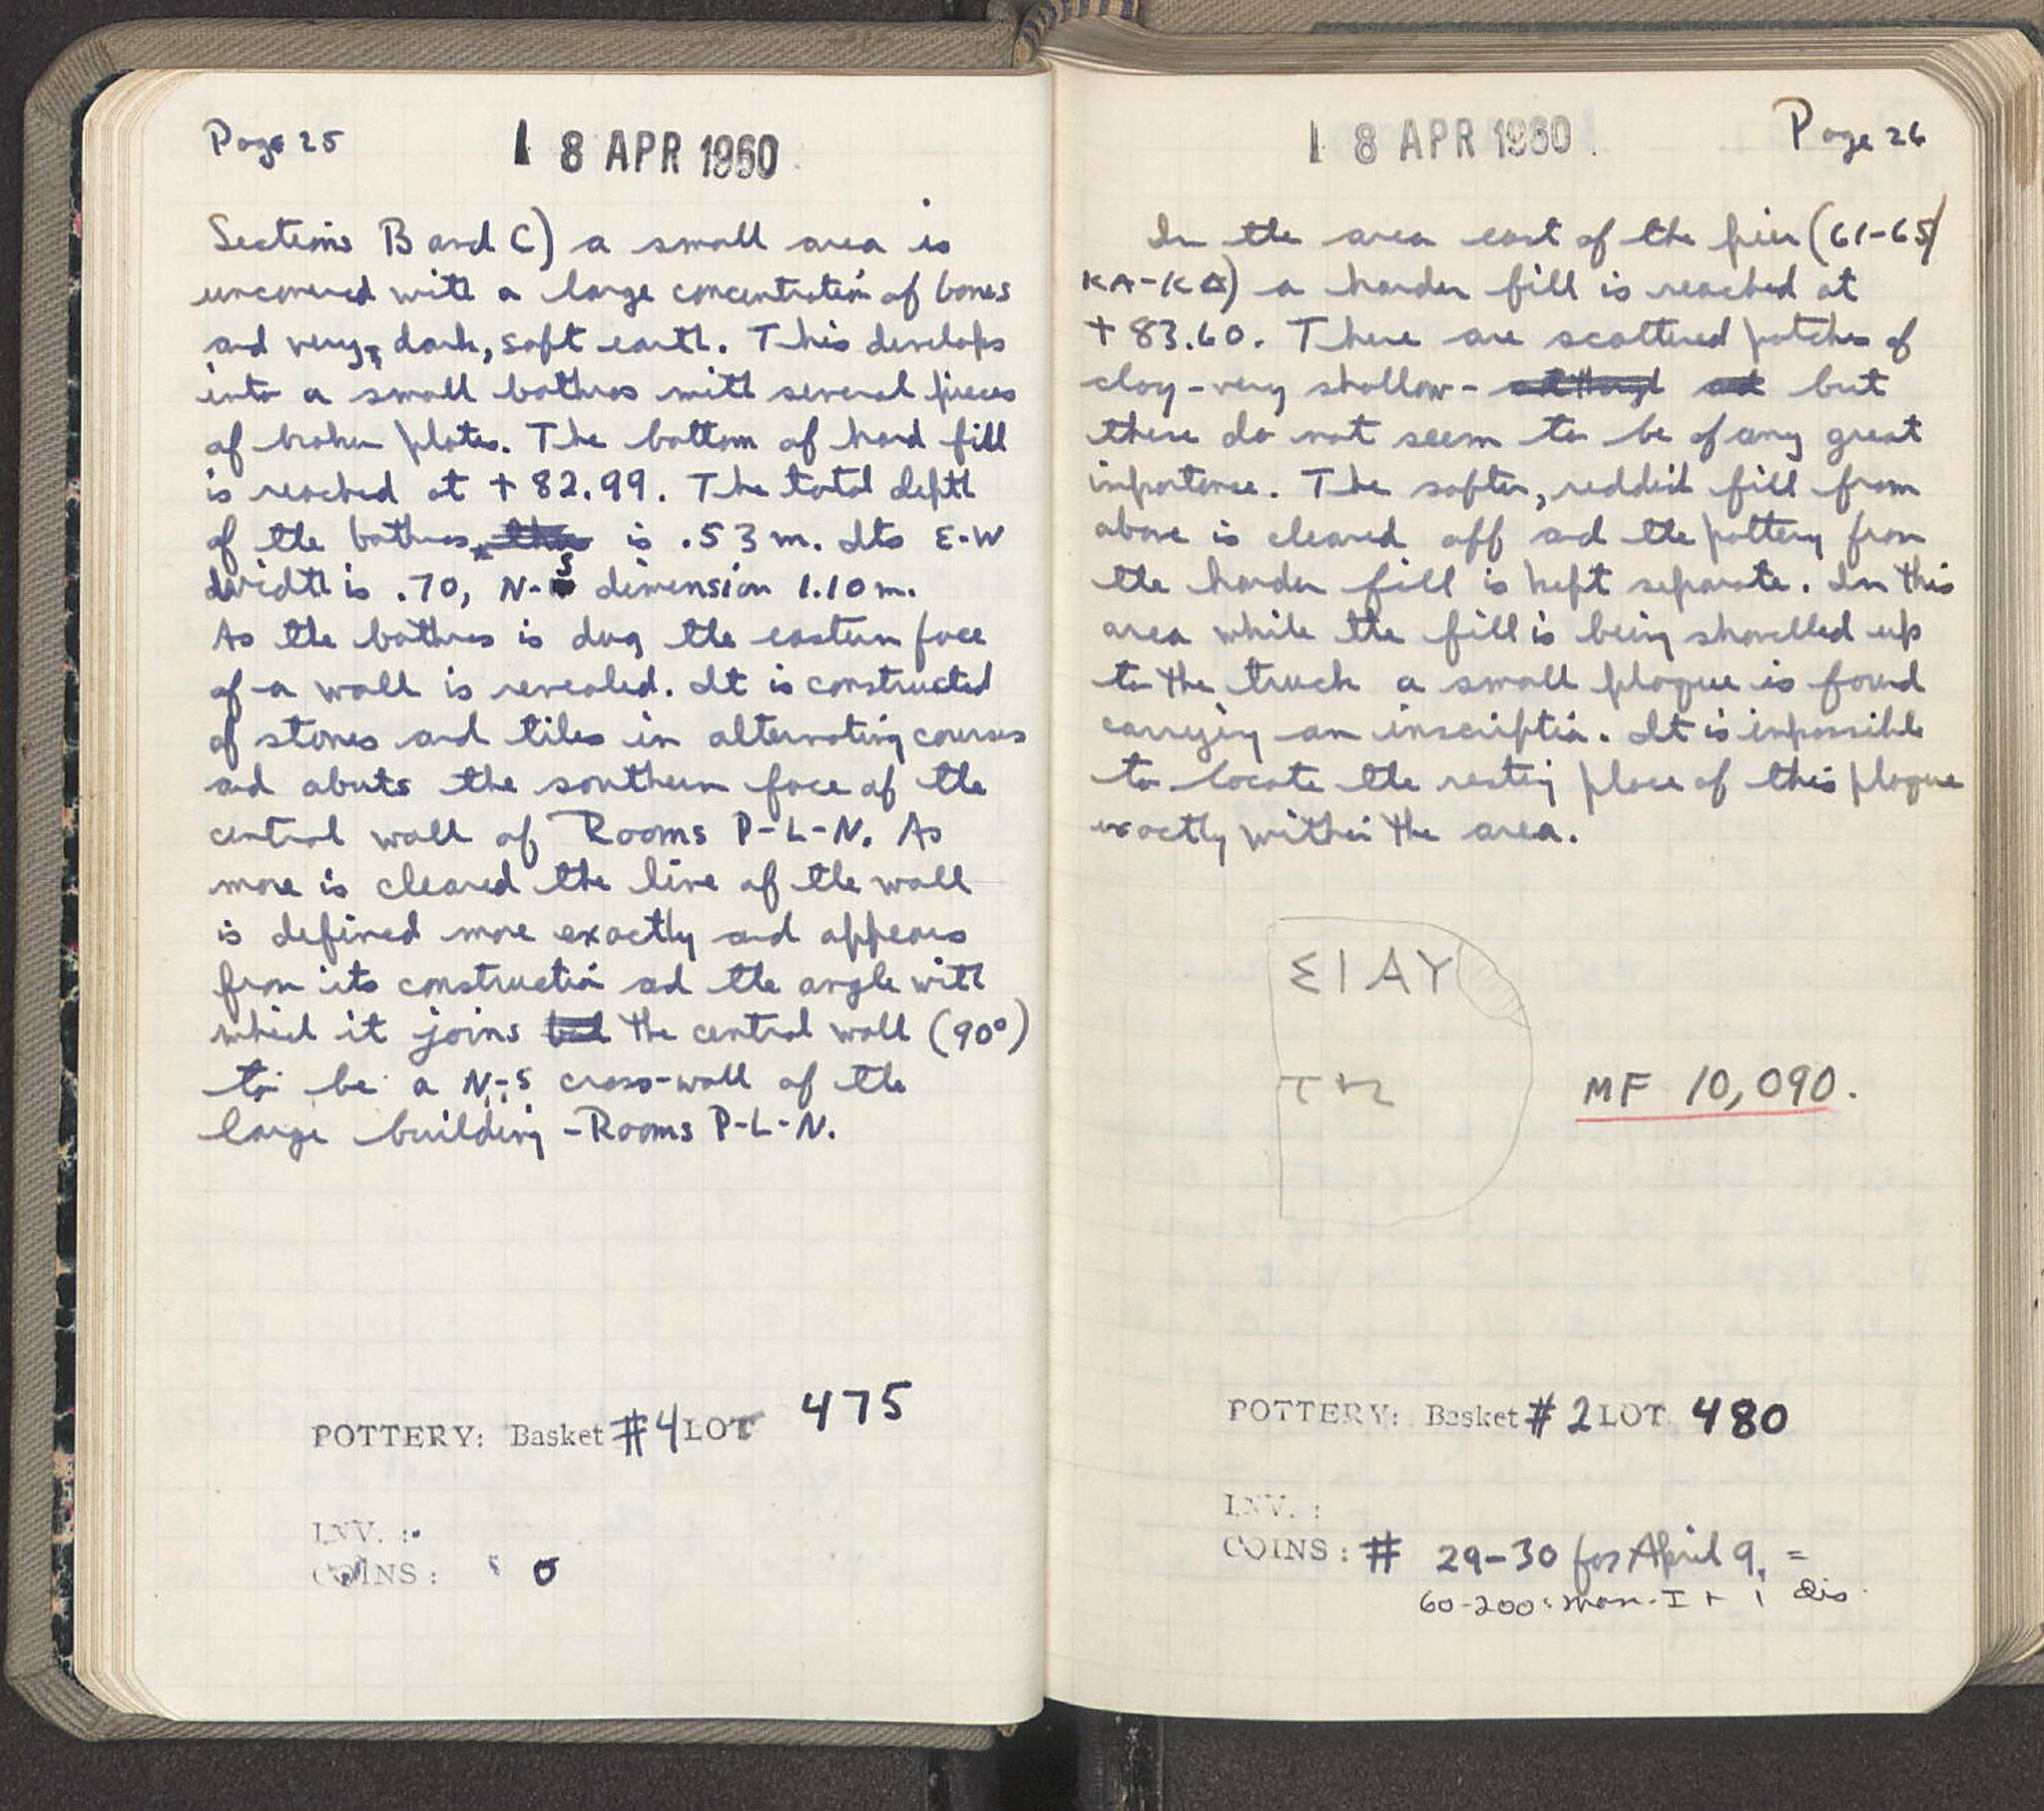 Page 25
1 8 APR 1960
Sections B and C) a small area is
uncovered with a large concentration of bones
and very, dark, soft earth. This develops
into a small bothros with several pieces
of broken plates. The bottom of hard fill
is reached at + 82.99. The total depth
of the bothros is .53 m. Its E-W
width is .70, N-S dimension 1.10 m.
As the bothros is dug the eastern face
of a wall is revealed. It is constructed
of stones and tiles in alternating courses
and abuts the southern face of the
central wall of Rooms P-L-N. As
more is cleared the line of the wall
is defined more exactly and appears
from its construction and the angle with
which it joins the central wall (90°)
to be a N-S cross-wall of the
large building - Rooms P-L-N.
POTTERY: Basket #4 LOT 475
INV. :
COINS : 0
1 8 APR 1960
Page 26
In the area east of the pier (61-65/
KA-KΔ) a harder fill is reached at
+ 83.60. There are scattered patches of
clay - very shallow - but
these do not seem to be of any great
importance. The softer, reddish fill from
above is cleared off and the pottery from
the harder fill is kept separate. In this
area while the fill is being shovelled up
to the truck a small plaque is found
carrying an inscription. It is impossible
to locate the resting place of this plaque
exactly within the area.
ΣΙΑΥ
MF 10,090.
POTTERY: Basket # 2 LOT 480
INV. :
COINS : # 29-30 for April 9. =
60-200: Man. I + 1 dis